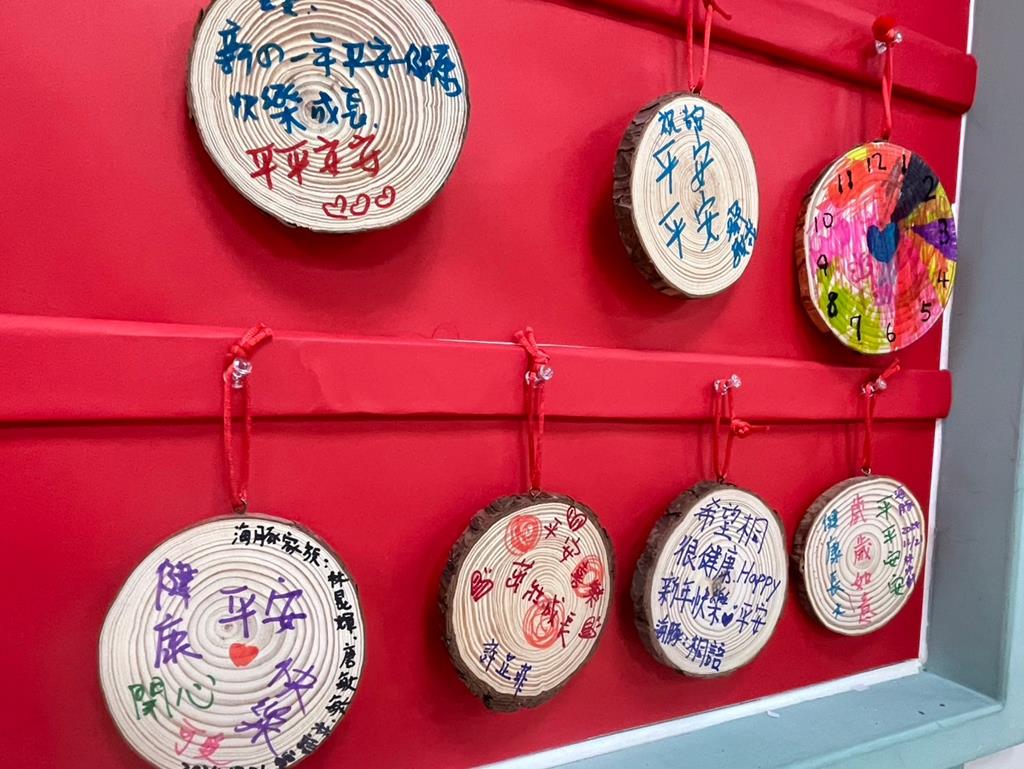 新の一年平安健康
快樂成長.
平平安安
祝福
平安
平安
12
1
2
3
4
5
6
7
8
9
10
11
海豚家族:林昆輝.唐敏
健康
平安
開心
快樂
平安
茁壯成長
許芷菲
希望桐
很健康.Happy
新年快樂♥平安
海豚:桐語
平平安安
歲歲如意
健康長大